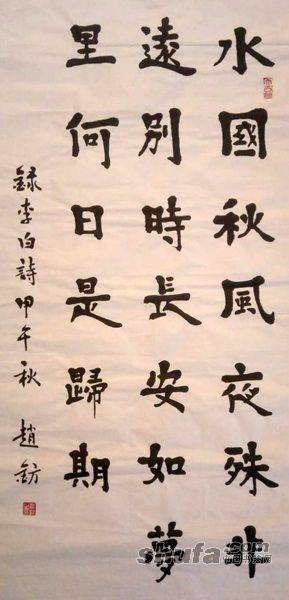 水國秋風夜殊非
遠別時長安如夢
里何日是歸期
録李白詩甲午秋 趙鈁
shufa.com